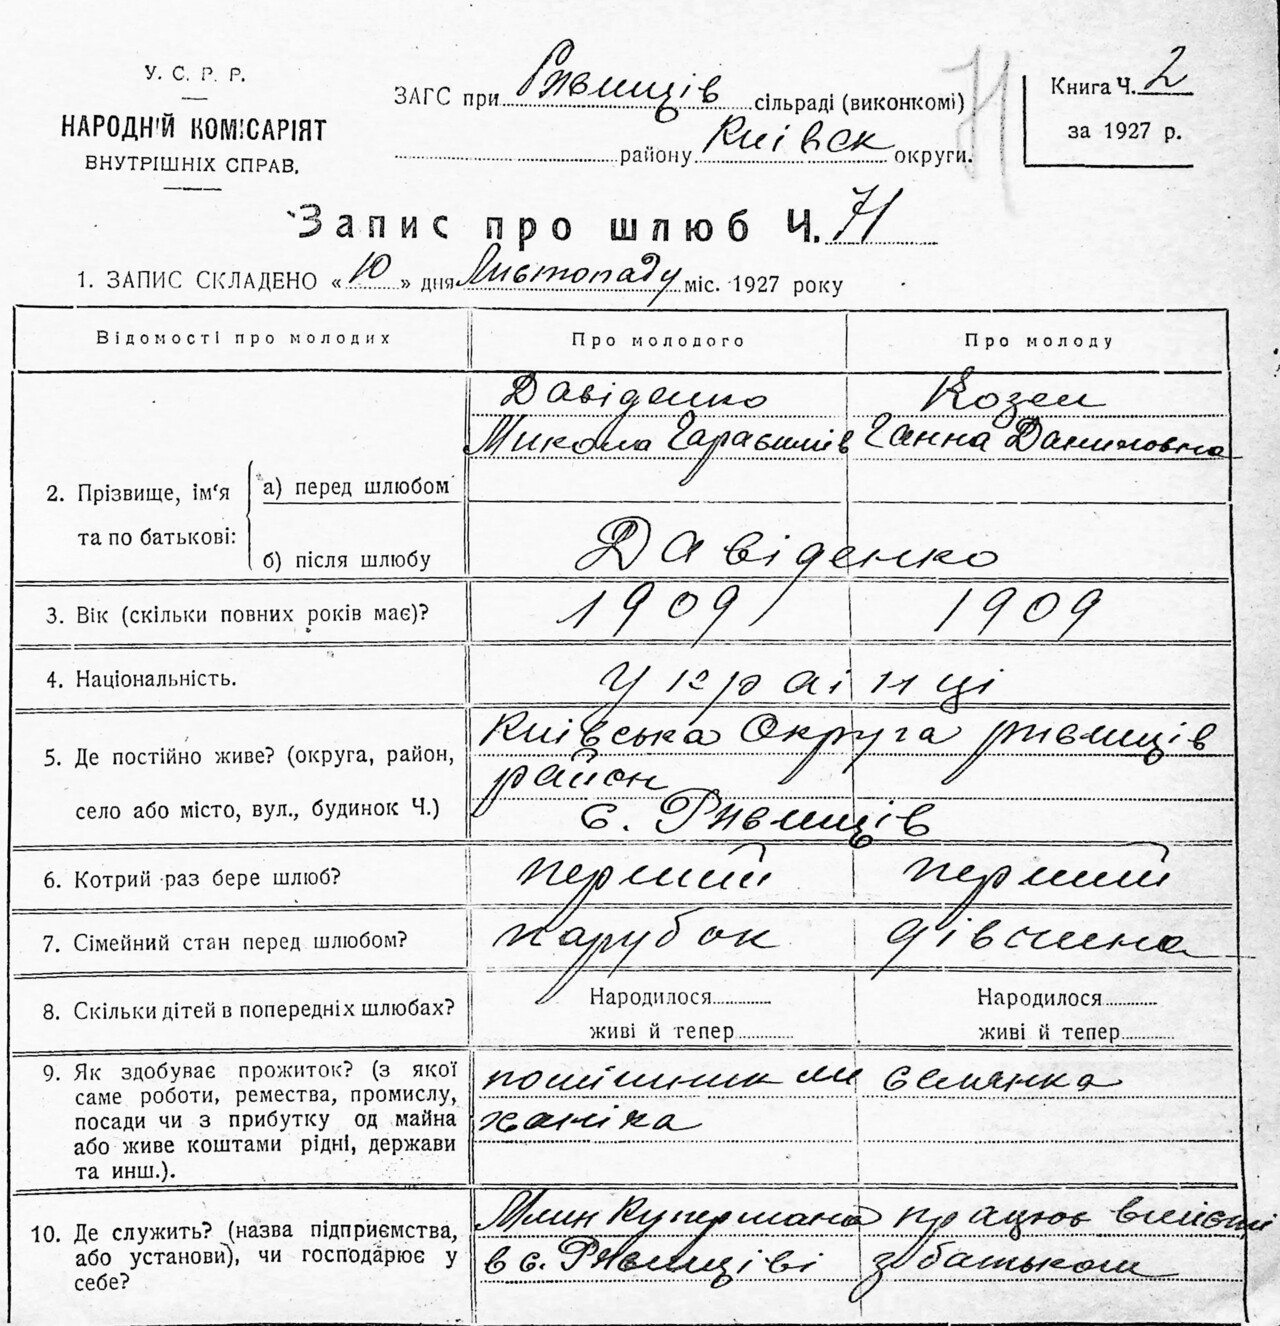 У. С. Р. Р.
НАРОДНІЙ КОМІСАРІЯТ
ВНУТРІШНІХ СПРАВ.
ЗАГС при Ржищів сільраді (виконкомі)
району Київск округи.
71
Книга Ч. 2
за 1927 р.
Запис про шлюб Ч. 71
1. ЗАПИС СКЛАДЕНО «10» дня Листопаду міс. 1927 року
Відомості про молодих
Про молодого
Про молоду
2. Прізвище, ім'я та по батькові:
а) перед шлюбом
Давіденко
Микола
Козел
Ганна Даниловна
б) після шлюбу
Давіденко
3. Вік (скільки повних років має)?
1909
1909
4. Національність.
Українці
5. Де постійно живе? (округа, район,
село або місто, вул., будинок Ч.)
Київська Округа Ржищів
район
с. Ржищів
6. Котрий раз бере шлюб?
перший
перший
7. Сімейний стан перед шлюбом?
парубок
дівчина
8. Скільки дітей в попередніх шлюбах?
Народилося
живі й тепер
Народилося
живі й тепер
9. Як здобуває прожиток? (з якої
саме роботи, ремества, промислу,
посади чи з прибутку од майна
або живе коштами рідні, держави
та инш.).
помішник ме
ханіка
селянка
10. Де служить? (назва підприємства,
або установи), чи господарює у
себе?
Млин Купермана
в с. Ржищіві
працює вмісті
з батьком